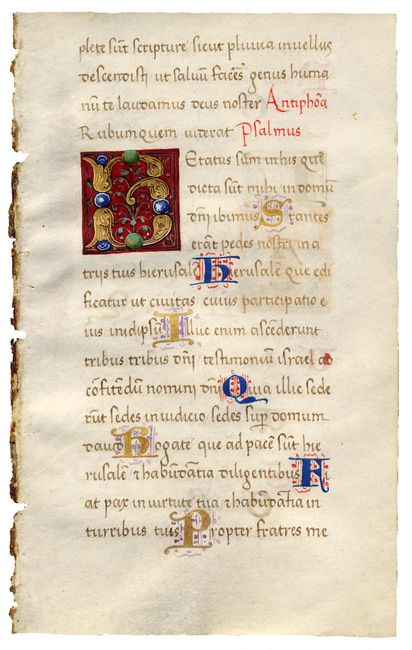 plete sūt scripture sicut pluvia in vellus
descendisti ut salvuū facēs genus huma
nū te laudamus deus noster Antiphōa
Rubum quem viderat Psalmus
Letatus sum in his que
dicta sūt mihi in domū
dn̄i ibimus Stantes
erāt pedes nostri in a
trijs tuis hierusalē Hierusalē que edi
ficatur ut civitas cuius participatio e
ius in idipsū Illuc enim ascēderunt
tribus tribus dn̄i testimoniū israel ad
cōfitēdū nomini dn̄i Quia illic sede
rūt sedes in iudicio sedes sup̄ domum
david Rogate que ad pacē sūt hie
rusalē & habūdātia diligentibus Fi
at pax in virtute tua & habūdātia in
turribus tuis Propter fratres me